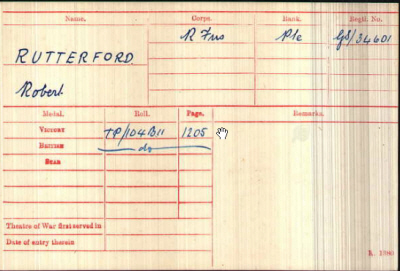 Name. Corps. Rank. Regtl. No.
RUTTERFORD R Fus Pte GS/34601
Robert
Medal. Roll. Page. Remarks.
VICTORY TP/104B11 1205
BRITISH do
STAR
Theatre of War first served in
Date of entry therein